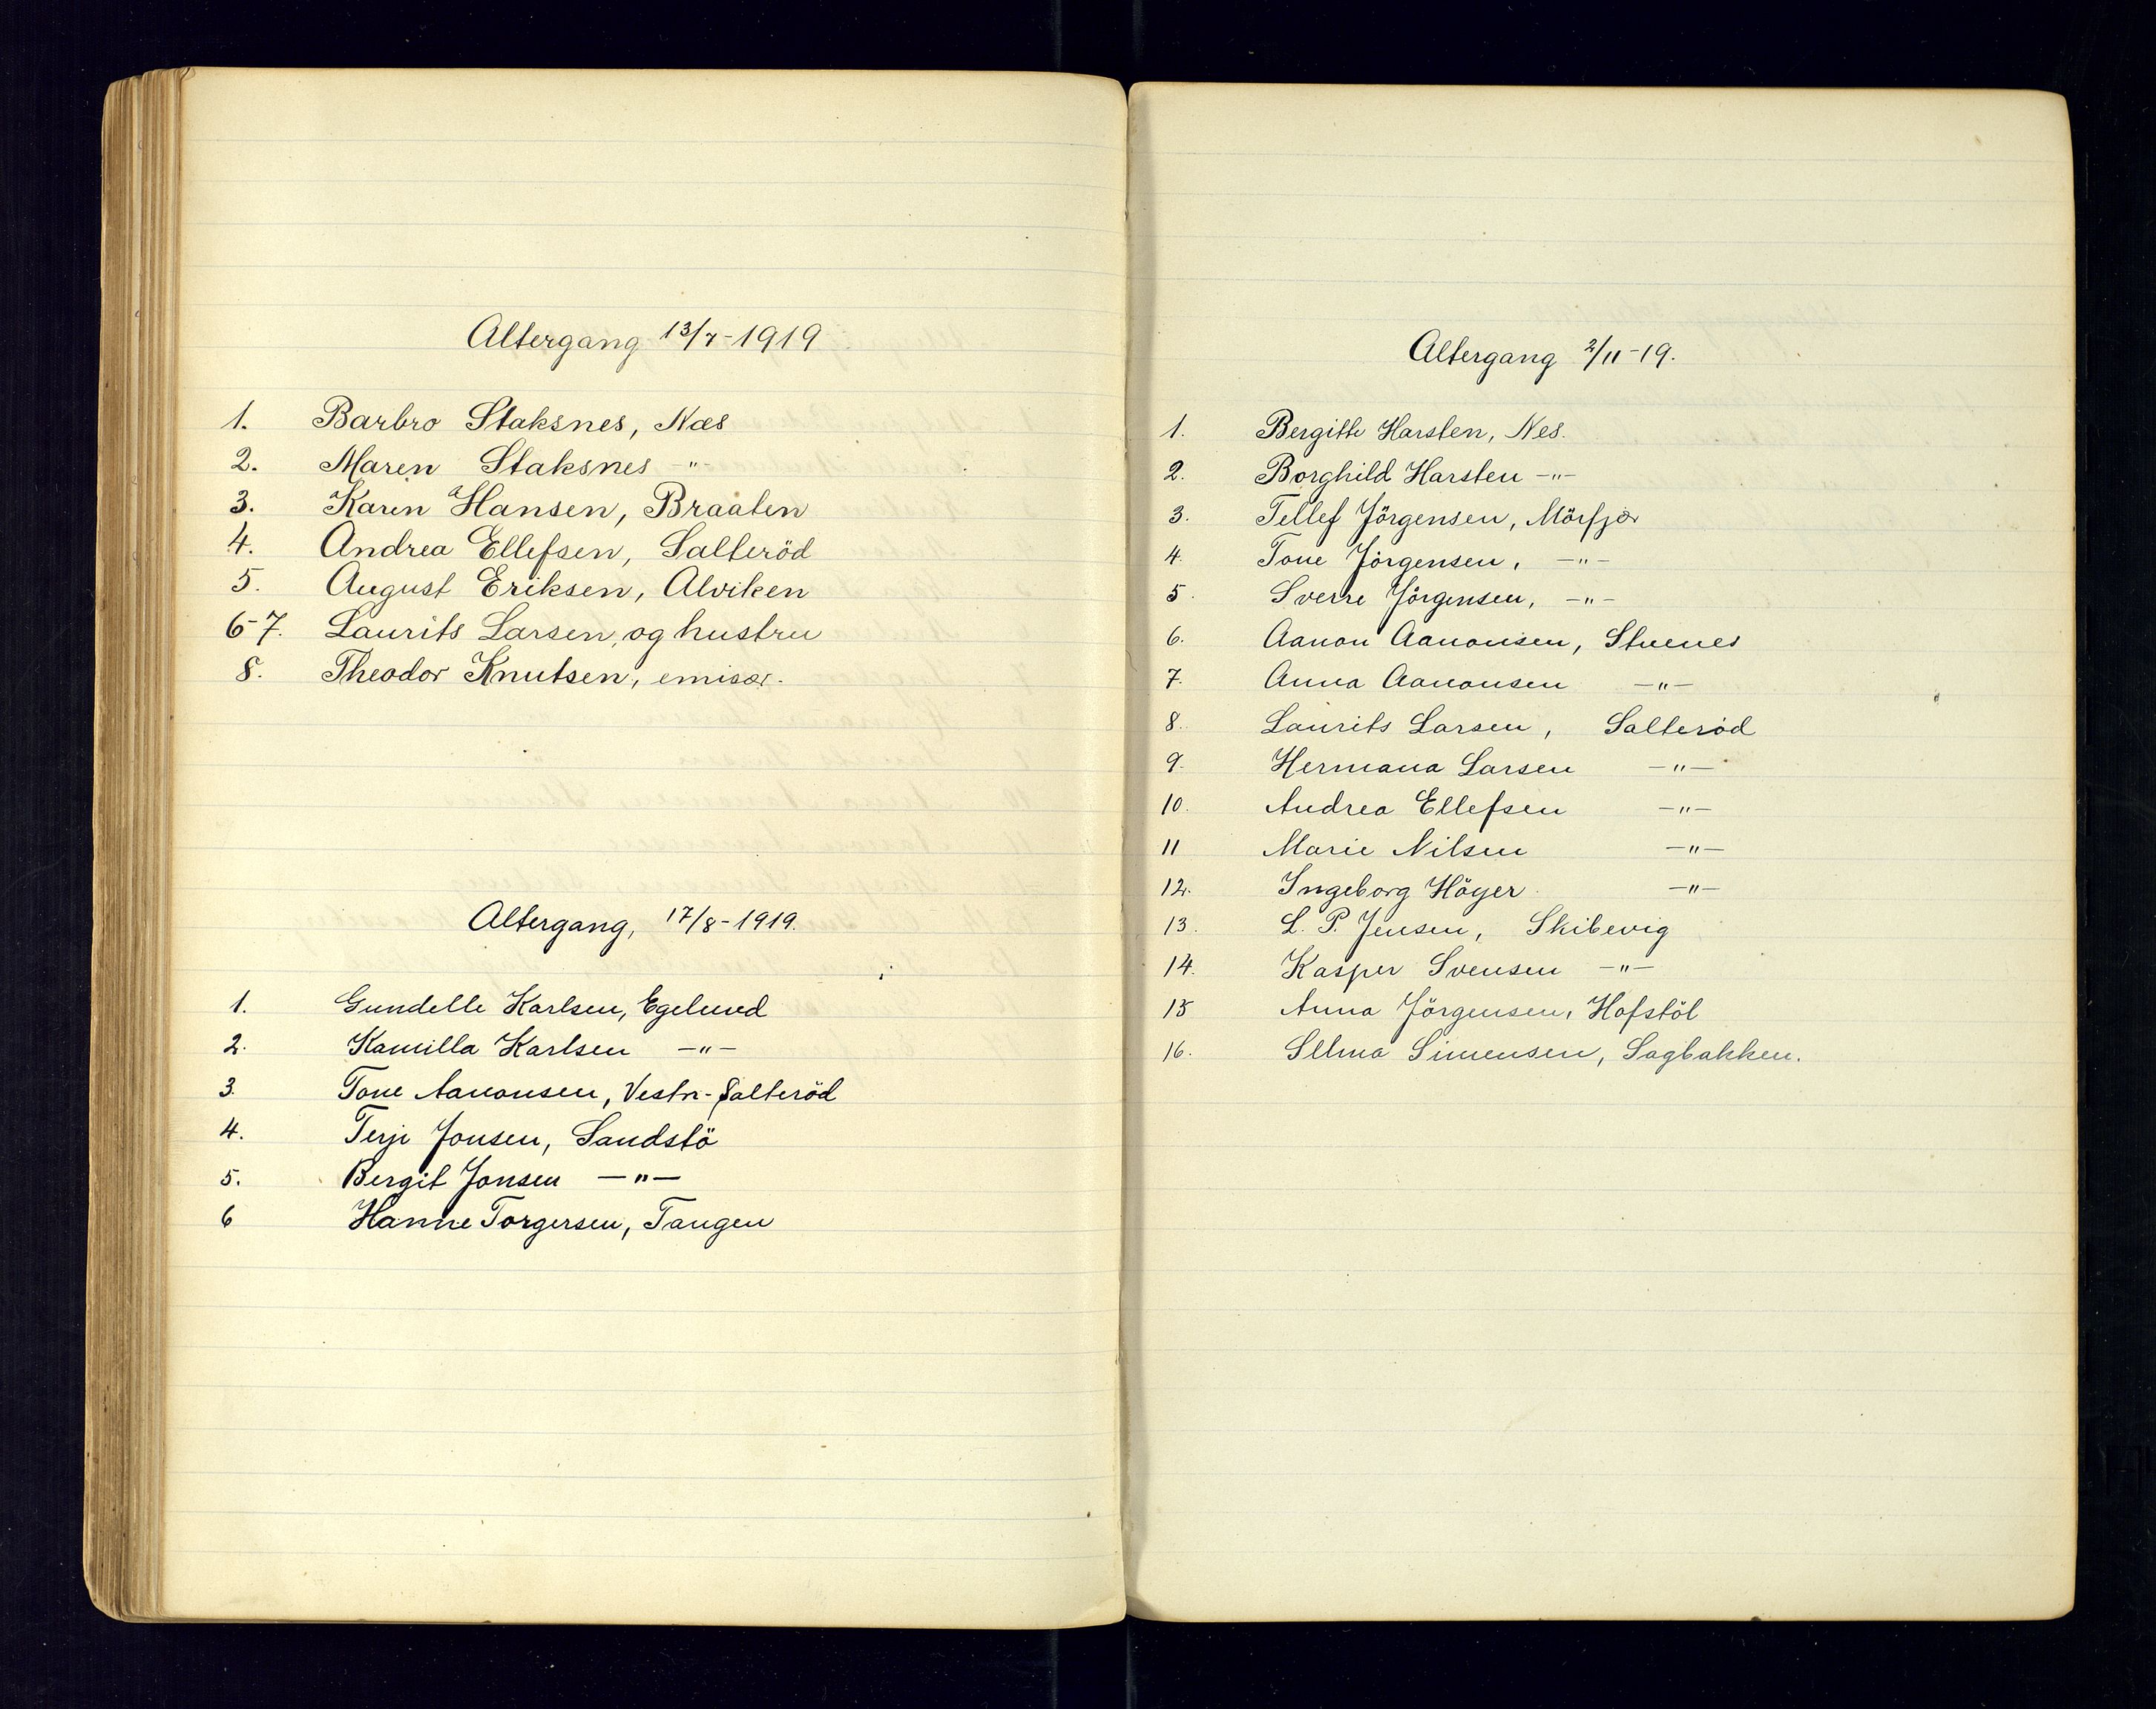 Altergang 13/7-1919
1. Barbro Staksnes, Næs
2. Maren Staksnes -"-
3. Karen Hansen, Braaten
4. Andrea Ellefsen, Salteröd
5. August Eriksen, Alviken
6-7. Laurits Larsen, og hustru
8. Theodor Knutsen, emisær.
Altergang, 17/8-1919.
1. Gundelle Karlsen, Egelund
2. Kamilla Karlsen -"-
3. Tone Aanonsen, Vestr-Salteröd
4. Terje Jonsen, Sandstö
5. Bergit Jonsen -"-
6 Hanne Torgersen, Tangen
Altergang 2/11-19.
1. Bergitte Harsten, Nes.
2. Borghild Harsten -"-
3. Tellef Jörgensen, Mörfjær
4. Tone Jörgensen, -"-
5. Sverre Jörgensen, -"-
6. Aanon Aanonsen, Stuenes
7. Anna Aanonsen -"-
8. Laurits Larsen, Salteröd
9. Hermana Larsen -"-
10. Andrea Ellefsen -"-
11 Marie Nilsen -"-
12. Ingeborg Höyer -"-
13. L. P. Jensen, Skibevig
14. Kasper Svensen -"-
15 Anna Jörgensen, Hofstöl
16. Selma Simensen, Sagbakken.